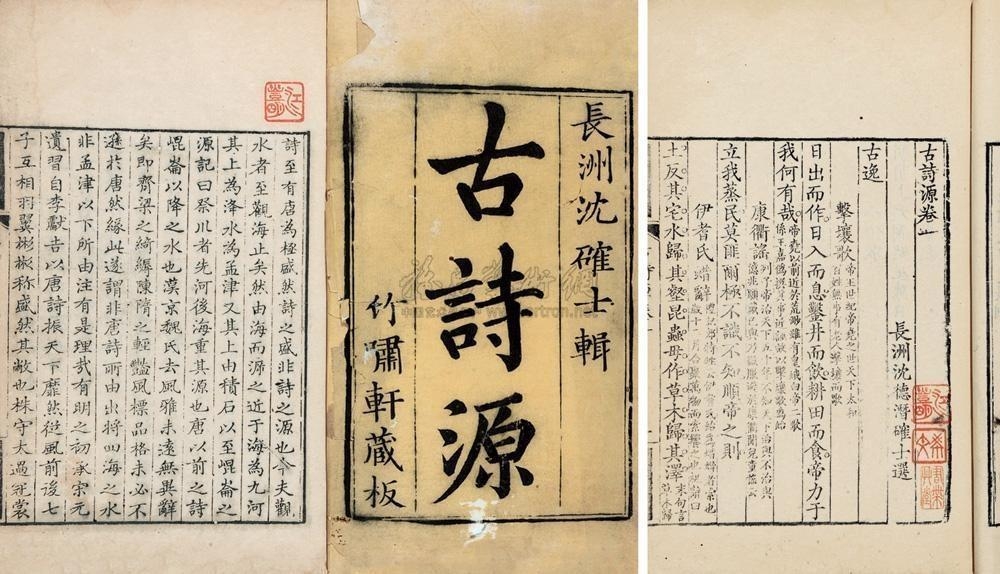 詩至有唐為極盛然詩之盛非詩之源也今夫觀
水者至觀海止矣然由海而溯之近于海為九河
其上為洚水為孟津又其上由積石以至崐崙之
源記曰祭川者先河後海重其源也唐以前之詩
崐崙以降之水也漢京魏氏去風雅未遠無異辭
矣即齊梁之綺縟陳隋之輕艷風標品格未必不
遜於唐然緣此遂謂非唐詩所由出將四海之水
非孟津以下所由注有是理哉有明之初承宋元
遺習自李獻吉以唐詩振天下靡然從風前後七
子互相羽翼彬彬稱盛然其敝也株守太過冠裳
長洲沈確士輯
古詩源
竹嘯軒藏板
古詩源卷一
長洲沈德潛確士選
古逸
擊壤歌 帝王世紀帝堯之世天下太和百姓無事有老人擊壤而歌
日出而作日入而息鑿井而飲耕田而食帝力于
我何有哉 帝堯以前近於荒渺雖有皇娥白帝二歌係王嘉偽撰其事近誣故以擊壤歌為始
康衢謠
立我蒸民莫匪爾極不識不知順帝之則
伊耆氏蜡辭
土反其宅水歸其壑昆蟲毋作草木歸其澤